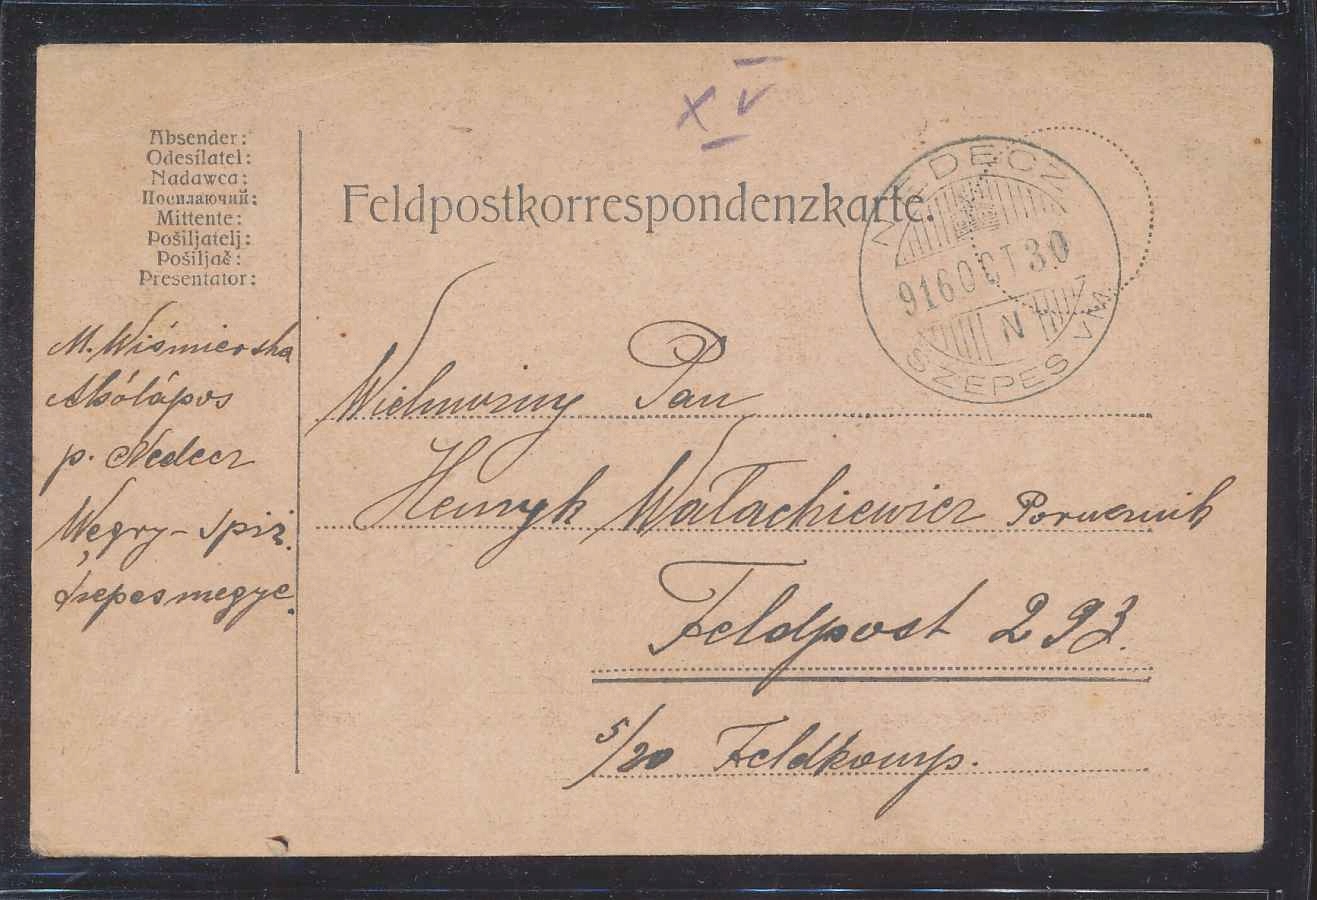 XV
Absender:
Odesílatel:
Nadawca:
Посилаючий:
Mittente:
Pošiljatelj:
Pošiljač:
Presentator:
Feldpostkorrespondenzkarte.
NEDECZ
916 OCT 30
N
SZEPES VM
M. Wiśmierska
Akólápos
p. Nedecz
Węgry – Spiż.
Szepesmegye.
Wielmożny Pan
Henryk Wałachiewicz Porucznik
Feldpost 293.
5/20 Feldkomp.